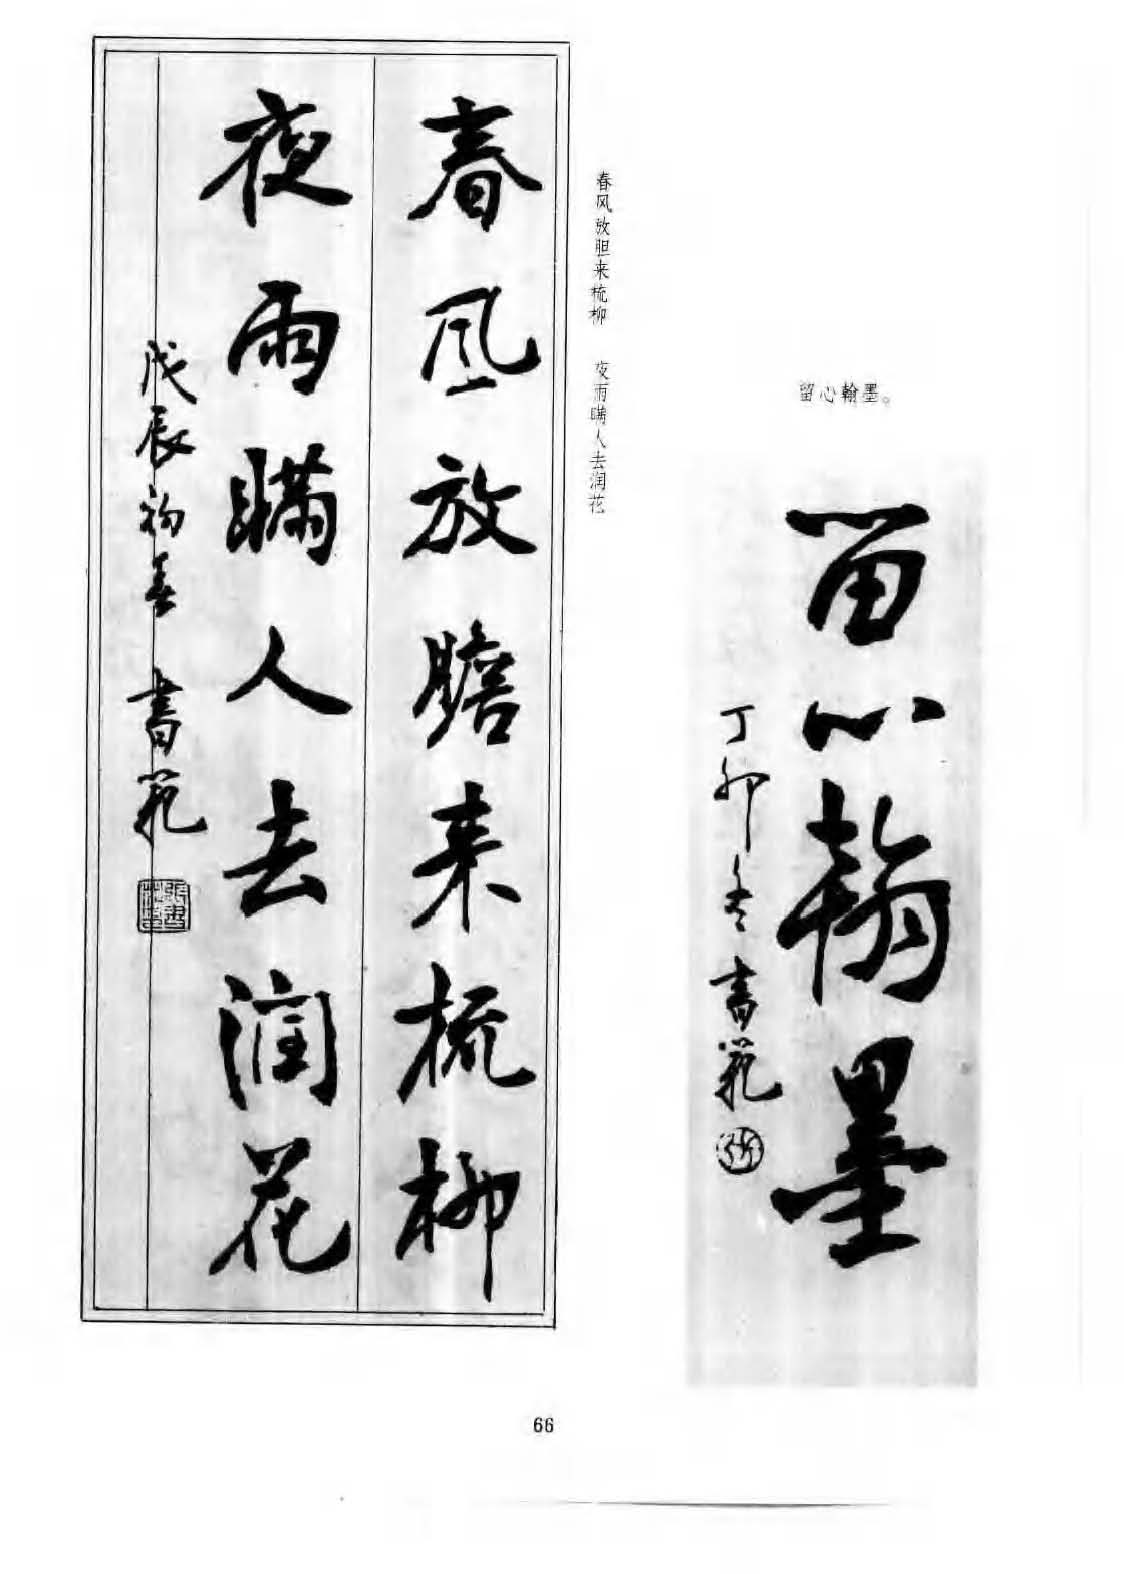 留心翰墨。
留心翰墨
丁卯冬書範
春风放胆来梳柳 夜雨瞒人去润花
春風放膽来梳柳
夜雨瞞人去潤花
戊辰初春 書範
66